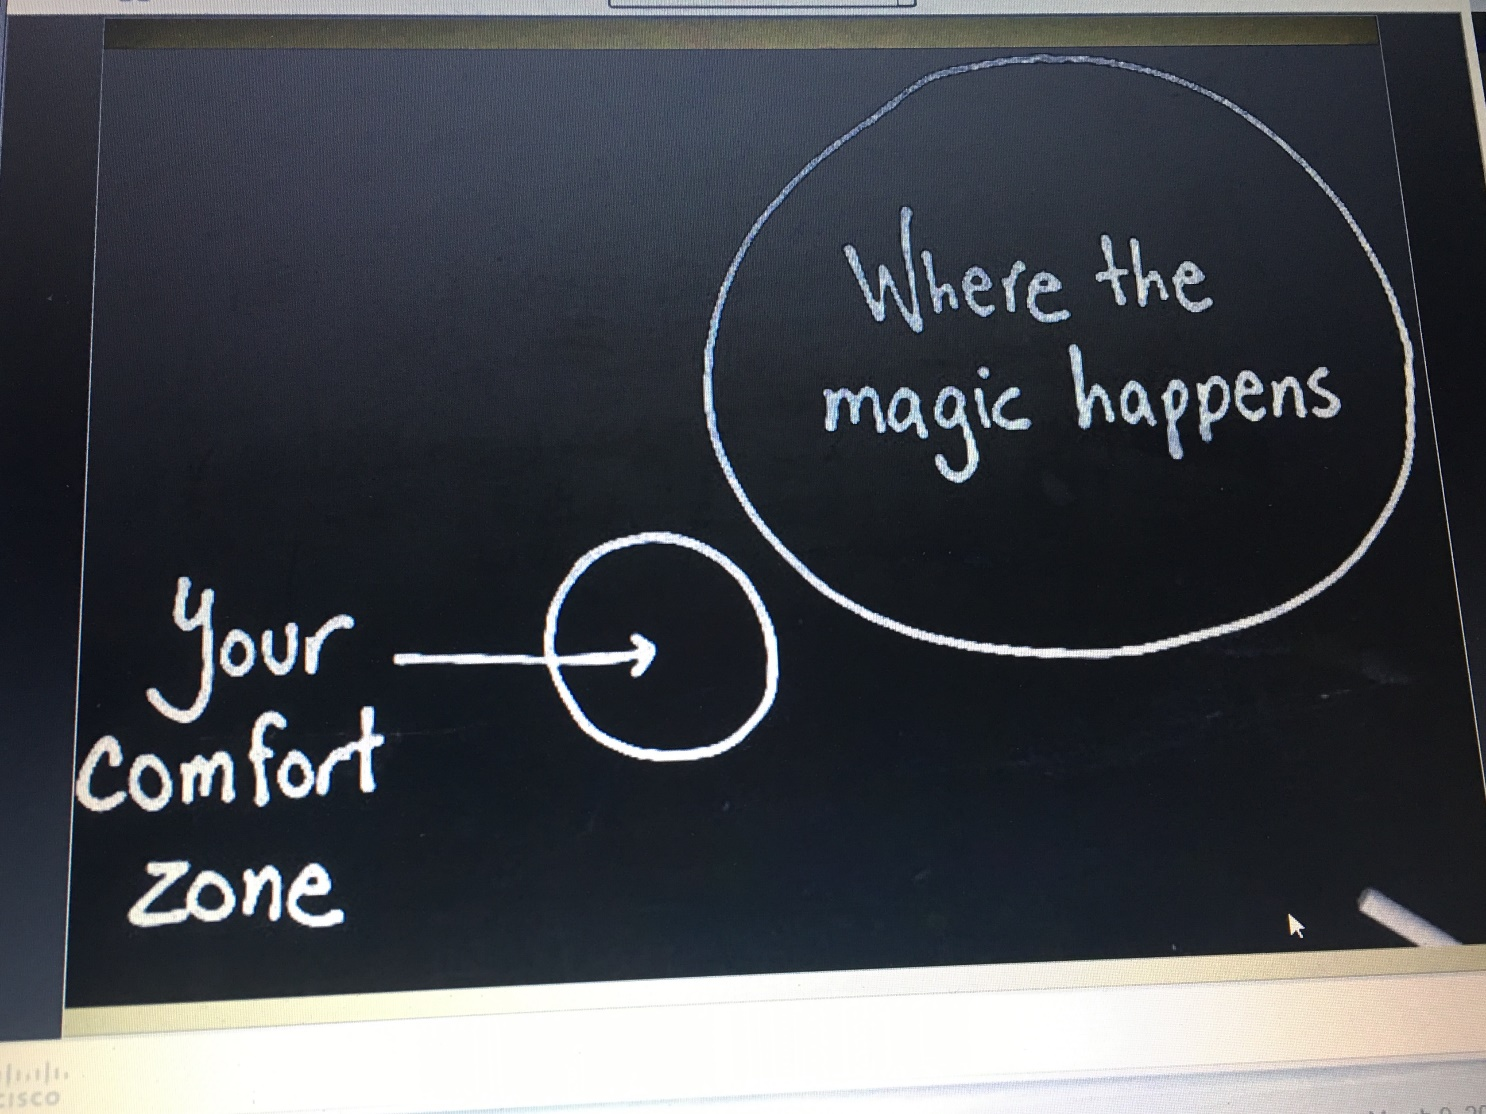 Where the
magic happens
Your
comfort
zone
CISCO